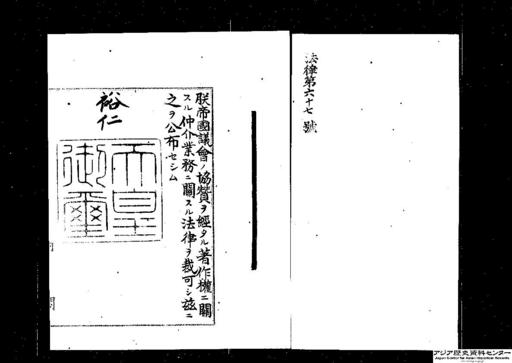 法律第六十七號
朕帝國議會ノ協賛ヲ經タル著作權ニ關
スル仲介業務ニ關スル法律ヲ裁可シ茲ニ
之ヲ公布セシム
裕仁
天皇
御璽
アジア歴史資料センター
Japan Center for Asian Historical Records